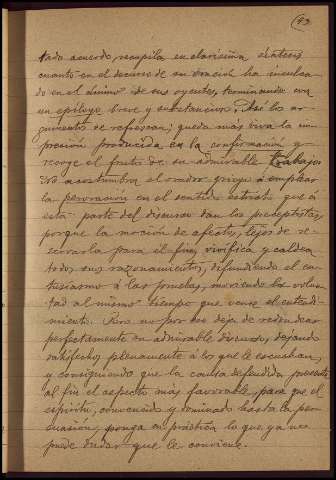 (43
tado acuerdo, recopila en clarísima síntesis
cuanto en el decurso de su oración ha inculca-
do en el ánimo de sus oyentes, terminando con
un epílogo breve y substancioso. Así los ar-
gumentos se refrescan; queda más viva la im-
presión producida en la confirmación y
recoge el fruto de su admirable trabajo.
No acostumbra el orador griego á emplear
la peroración en el sentido estricto que á
esta parte del discurso dan los preceptistas,
porque la moción de afectos, lejos de re-
servarla para el fin, vivifica y caldea
todos sus razonamientos, difundiendo el en-
tusiasmo á las pruebas, moviendo la volun-
tad al mismo tiempo que vence el entendi-
miento. Pero no por eso deja de redondear
perfectamente su admirable discurso, dejando
satisfechos plenamente á los que le escuchan,
y consiguiendo que la causa defendida presente
al fin el aspecto más favorable, para que el
espíritu, convencido y dominado hasta la per-
suasión, ponga en práctica lo que ya no
puede dudar que le conviene.